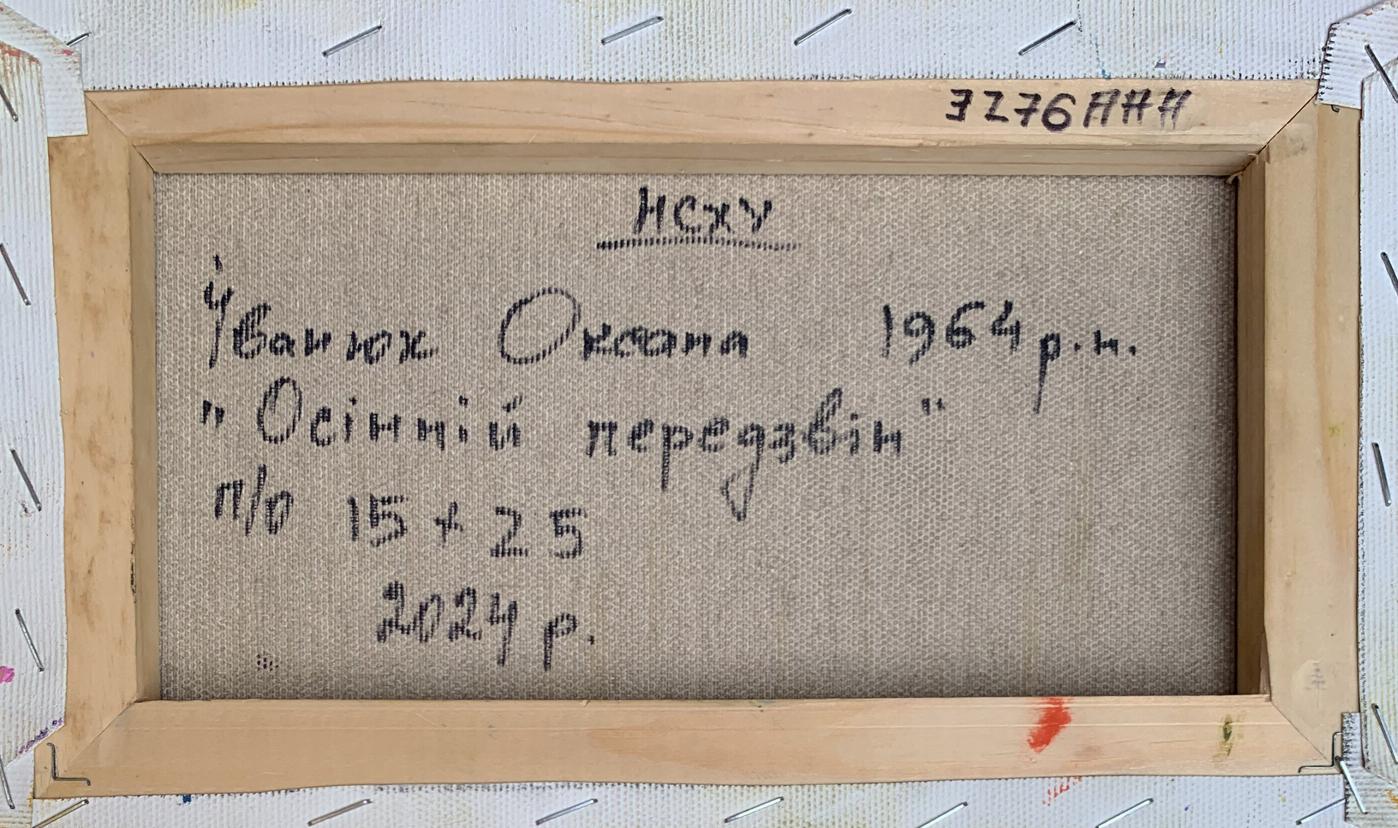 3276AAA
НСХУ
Іванюх Оксана 1964 р.н.
"Осінній передзвін"
п/о 15 х 25
2024 р.